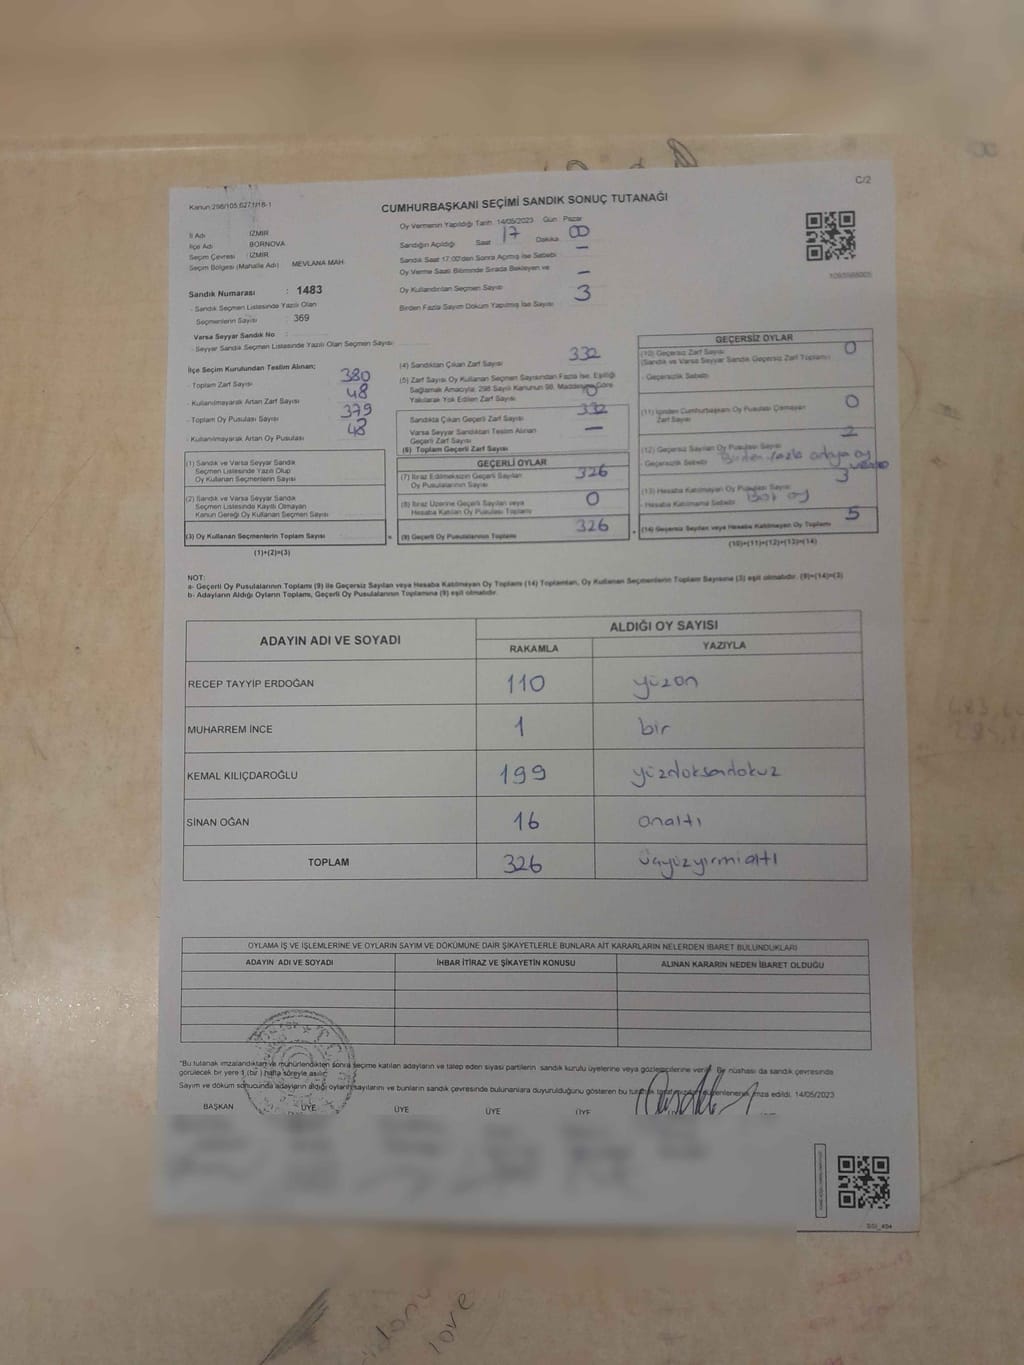 C/2
Kanun:298/105,627,1/18-1
CUMHURBAŞKANI SEÇİMİ SANDIK SONUÇ TUTANAĞI
İl Adı : İZMİR
İlçe Adı BORNOVA
Seçim Çevresi : İZMİR
Seçim Bölgesi (Mahalle Adı) MEVLANA MAH.
Sandık Numarası : 1483
- Sandık Seçmen Listesinde Yazılı Olan
Seçmenlerin Sayısı : 369
Varsa Seyyar Sandık No
- Seyyar Sandık Seçmen Listesinde Yazılı Olan Seçmen Sayısı
Oy Vermenin Yapıldığı Tarih 14/05/2023 Gün : Pazar
Sandığın Açıldığı Saat 17 Dakika 00
Sandık Saat 17:00'den Sonra Açılmış İse Sebebi –
Oy Verme Saati Bitiminde Sırada Bekleyen ve
Oy Kullandırılan Seçmen Sayısı –
Birden Fazla Sayım Döküm Yapılmış İse Sayısı 3
İlçe Seçim Kurulundan Teslim Alınan;
- Toplam Zarf Sayısı 380
- Kullanılmayarak Artan Zarf Sayısı 48
- Toplam Oy Pusulası Sayısı 379
- Kullanılmayarak Artan Oy Pusulası 48
(1) Sandık ve Varsa Seyyar Sandık
Seçmen Listesinde Yazılı Olup
Oy Kullanan Seçmenlerin Sayısı
(2) Sandık ve Varsa Seyyar Sandık
Seçmen Listesinde Kayıtlı Olmayan
Kanun Gereği Oy Kullanan Seçmen Sayısı
(3) Oy Kullanan Seçmenlerin Toplam Sayısı
(1)+(2)=(3)
(4) Sandıktan Çıkan Zarf Sayısı 332
(5) Zarf Sayısı Oy Kullanan Seçmen Sayısından Fazla İse, Eşitliği
Sağlamak Amacıyla, 298 Sayılı Kanunun 98. Maddesine Göre
Yakılarak Yok Edilen Zarf Sayısı 0
Sandıkta Çıkan Geçerli Zarf Sayısı 332
Varsa Seyyar Sandıktan Teslim Alınan
Geçerli Zarf Sayısı –
(6) Toplam Geçerli Zarf Sayısı
GEÇERLİ OYLAR
(7) İtiraz Edilmeksizin Geçerli Sayılan
Oy Pusulalarının Sayısı 326
(8) İtiraz Üzerine Geçerli Sayılan veya
Hesaba Katılan Oy Pusulası Toplamı 0
(9) Geçerli Oy Pusulalarının Toplamı 326
GEÇERSİZ OYLAR
(10) Geçersiz Zarf Sayısı 0
(Sandık ve Varsa Seyyar Sandık Geçersiz Zarf Toplamı)
- Geçersizlik Sebebi
(11) İçinden Cumhurbaşkanı Oy Pusulası Çıkmayan
Zarf Sayısı 0
(12) Geçersiz Sayılan Oy Pusulası Sayısı 2
- Geçersizlik Sebebi Birden fazla adaya oy
(13) Hesaba Katılmayan Oy Pusulası Sayısı 3
- Hesaba Katılmama Sebebi Boş oy
(14) Geçersiz Sayılan veya Hesaba Katılmayan Oy Toplamı 5
(10)+(11)+(12)+(13)=(14)
NOT:
a- Geçerli Oy Pusulalarının Toplamı (9) ile Geçersiz Sayılan veya Hesaba Katılmayan Oy Toplamı (14) Toplamları, Oy Kullanan Seçmenlerin Toplam Sayısına (3) eşit olmalıdır. (9)+(14)=(3)
b- Adayların Aldığı Oyların Toplamı, Geçerli Oy Pusulalarının Toplamına (9) eşit olmalıdır.
ADAYIN ADI VE SOYADI ALDIĞI OY SAYISI
RAKAMLA YAZIYLA
RECEP TAYYİP ERDOĞAN 110 yüzon
MUHARREM İNCE 1 bir
KEMAL KILIÇDAROĞLU 199 yüzdoksandokuz
SİNAN OĞAN 16 onaltı
TOPLAM 326 üçyüzyirmialtı
OYLAMA İŞ VE İŞLEMLERİNE VE OYLARIN SAYIM VE DÖKÜMÜNE DAİR ŞİKAYETLERLE BUNLARA AİT KARARLARIN NELERDEN İBARET BULUNDUKLARI
ADAYIN ADI VE SOYADI İHBAR İTİRAZ VE ŞİKAYETİN KONUSU ALINAN KARARIN NEDEN İBARET OLDUĞU
*Bu tutanak imzalandıktan ve mühürlendikten sonra seçime katılan adayların ve talep eden siyasi partilerin sandık kurulu üyelerine veya gözlemcilerine verilir. Bir nüshası da sandık çevresinde
görülecek bir yere 1 (bir) hafta süreyle asılır.
Sayım ve döküm sonucunda adayların aldığı oyların sayılarını ve bunların sandık çevresinde bulunanlara duyurulduğunu gösteren bu tutanak imza edildi. 14/05/2023
BAŞKAN ÜYE ÜYE ÜYE ÜYE
love